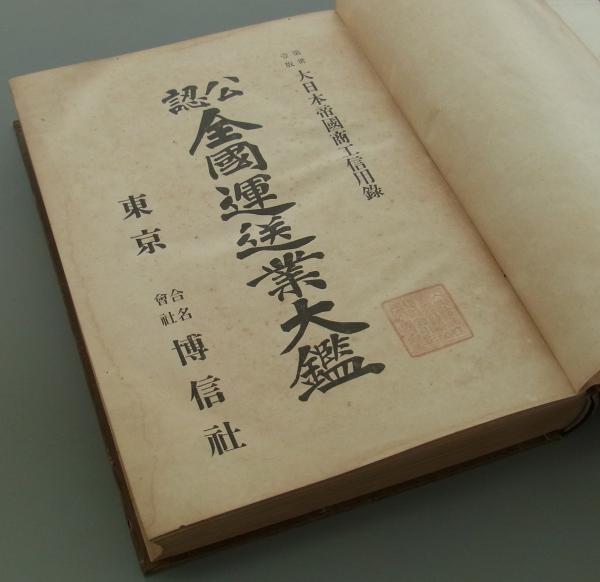 第廿
壹版
大日本帝國商工信用錄
公認
全國運送業大鑑
東京
合名
會社
博信社